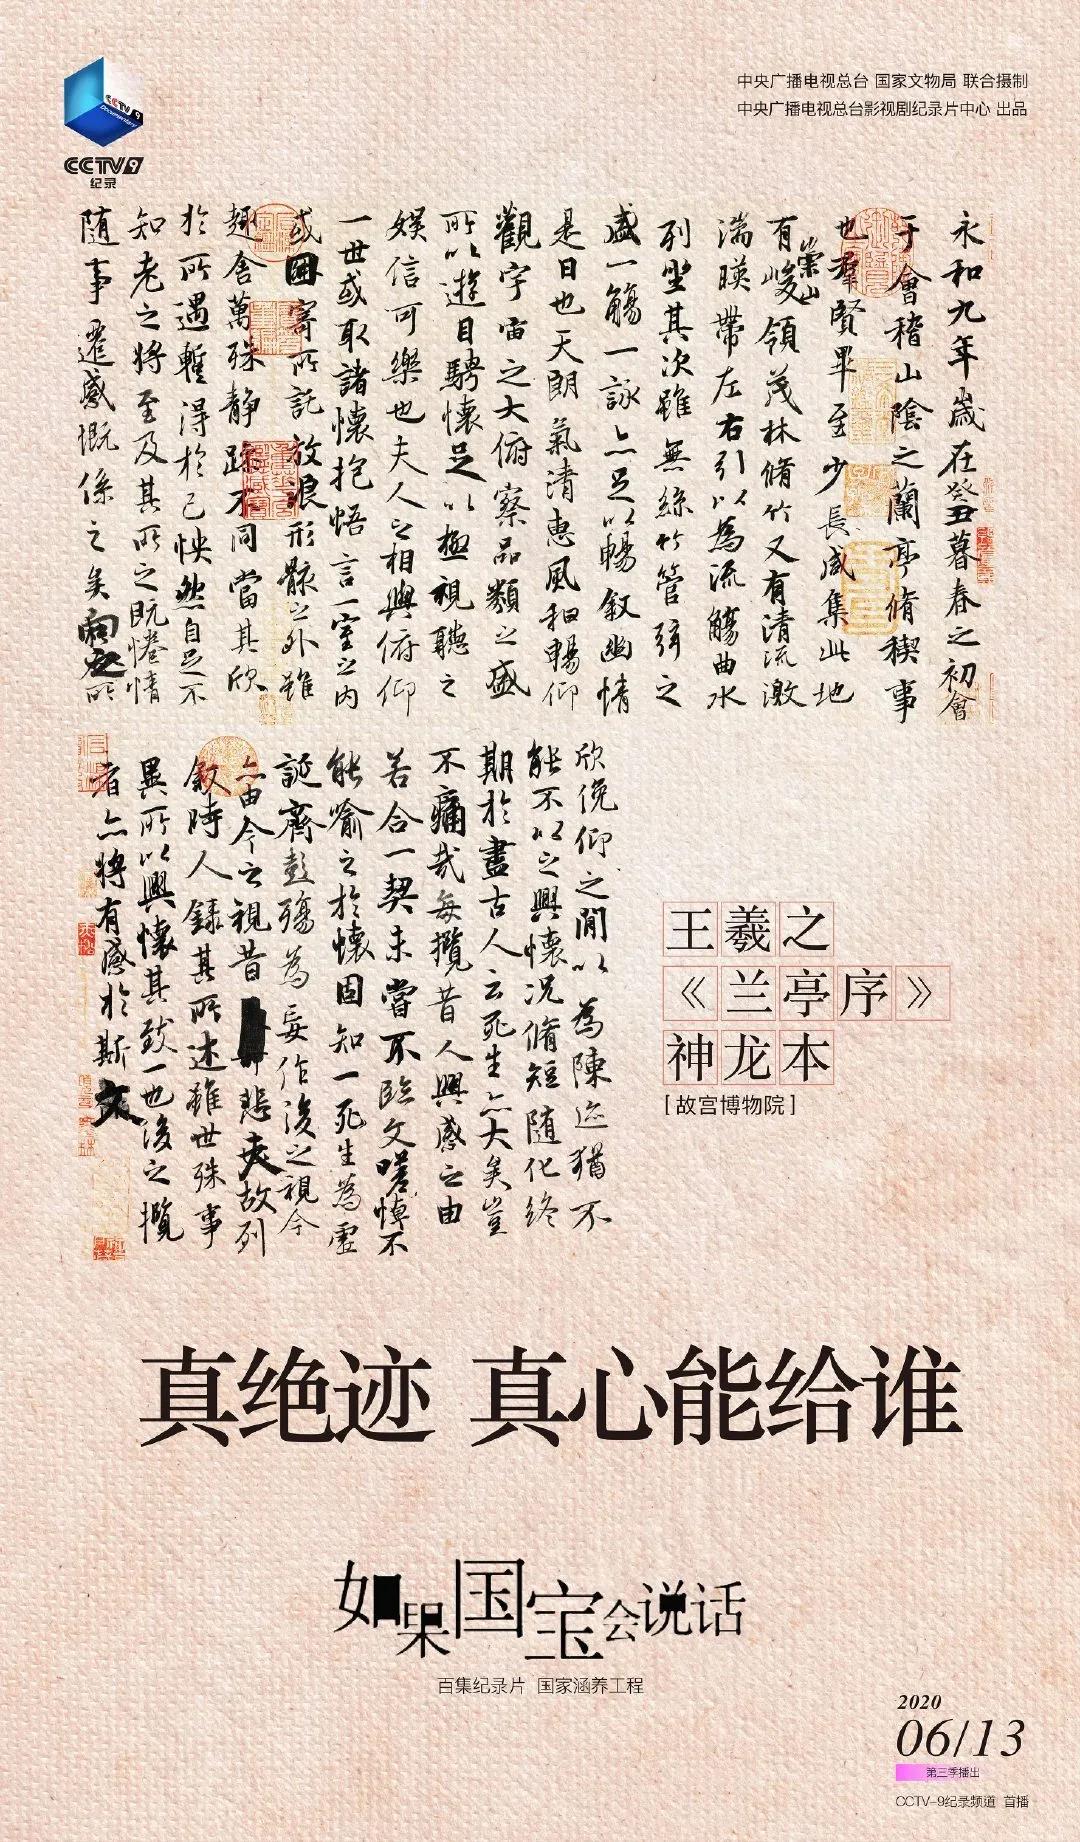 CCTV 9
Documentary
CCTV9
纪录
中央广播电视总台 国家文物局 联合摄制
中央广播电视总台影视剧纪录片中心 出品
永和九年歲在癸丑暮春之初會
于會稽山陰之蘭亭脩稧事
也羣賢畢至少長咸集此地
有崇山峻領茂林脩竹又有清流激
湍暎帶左右引以為流觴曲水
列坐其次雖無絲竹管弦之
盛一觴一詠亦足以暢敘幽情
是日也天朗氣清惠風和暢仰
觀宇宙之大俯察品類之盛
所以遊目騁懷足以極視聽之
娛信可樂也夫人之相與俯仰
一世或取諸懷抱悟言一室之內
或因寄所託放浪形骸之外雖
趣舍萬殊靜躁不同當其欣
於所遇暫得於己怏然自足不
知老之將至及其所之既惓情
隨事遷感慨係之矣向之所
欣俛仰之閒以為陳迹猶不
能不以之興懷況脩短隨化終
期於盡古人云死生亦大矣豈
不痛哉每攬昔人興感之由
若合一契未嘗不臨文嗟悼不
能喻之於懷固知一死生為虛
誕齊彭殤為妄作後之視今
亦由今之視昔悲夫故列
敘時人錄其所述雖世殊事
異所以興懷其致一也後之攬
者亦將有感於斯文
王羲之
《兰亭序》
神龙本
[故宫博物院]
真绝迹 真心能给谁
如果国宝会说话
百集纪录片 国家涵养工程
2020
06/13
第三季播出
CCTV-9纪录频道 首播